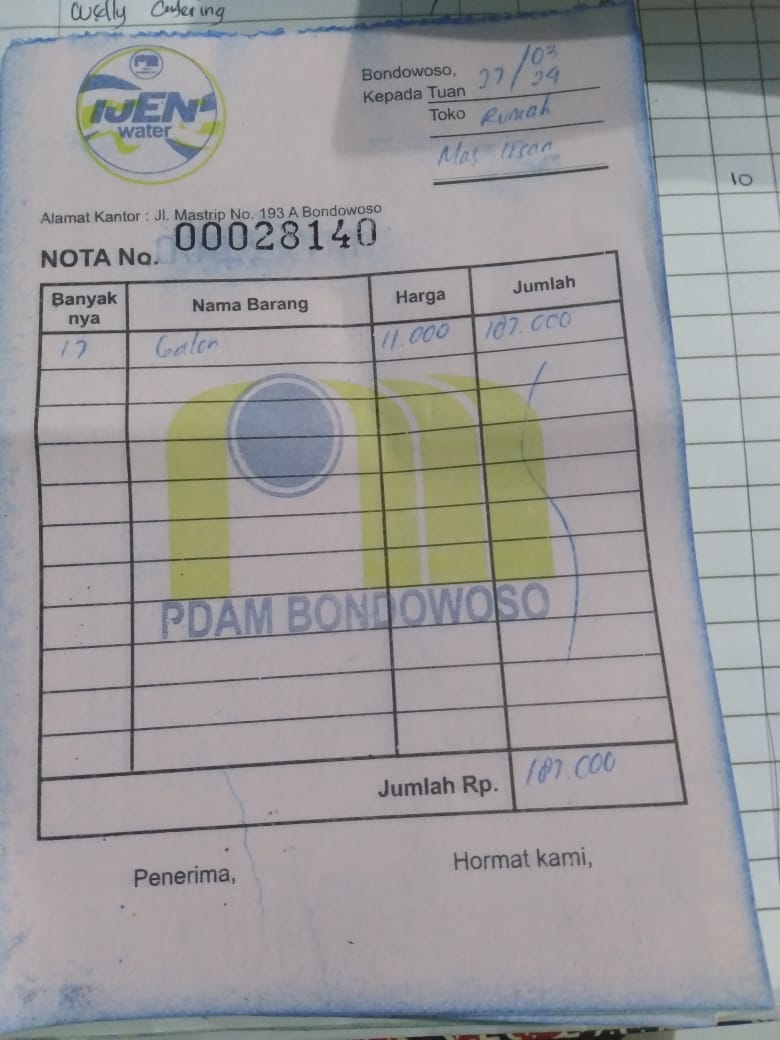 Cuelly Catering
IJEN
water
Bondowoso, 27/03
24
Kepada Tuan
Toko Rumah
Mas Ihsan
10
Alamat Kantor : Jl. Mastrip No. 193 A Bondowoso
NOTA No. 00028140
Banyak nya Nama Barang Harga Jumlah
17 Galon 11.000 187.000
PDAM BONDOWOSO
Jumlah Rp. 187.000
Penerima, Hormat kami,